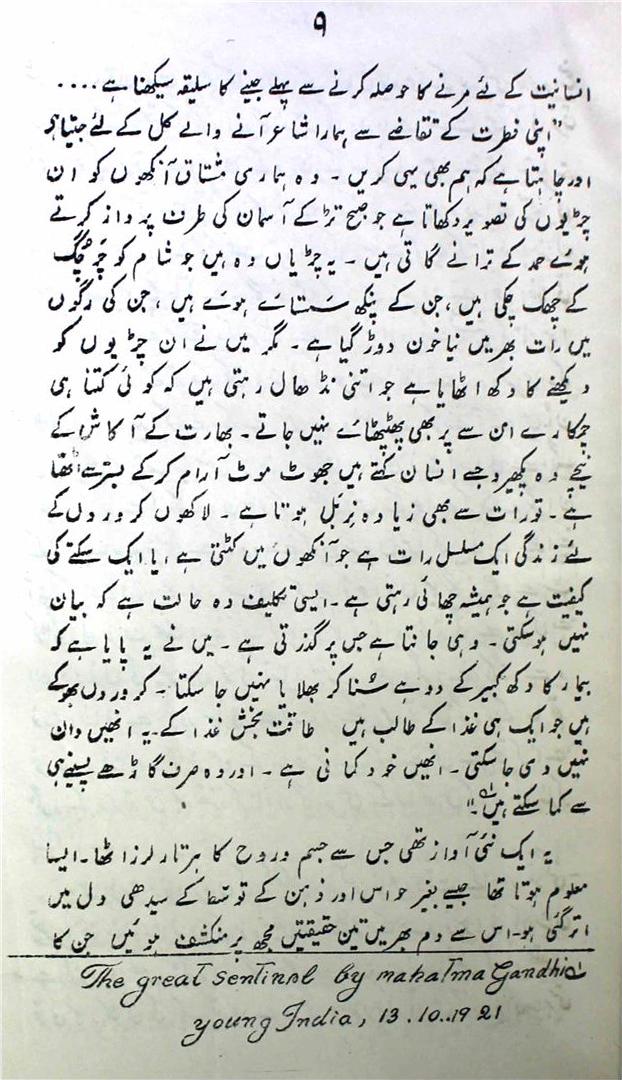 ۹
انسانیت کے لئے مرنے کا حوصلہ کرنے سے پہلے جینے کا سلیقہ سیکھنا ہے ....
"اپنی فطرت کے تقاضے سے ہمارا شاعر آنے والے کل کے لئے جیتا ہے
اور چاہتا ہے کہ ہم بھی یہی کریں ۔ وہ ہماری مشتاق آنکھوں کو ان
چڑیوں کی تصویر دکھاتا ہے جو صبح تڑکے آسمان کی طرف پرواز کرتے
ہوئے حمد کے ترانے گاتی ہیں ۔ یہ چڑیاں وہ ہیں جو شام کو چر چگ
کے چھک چکی ہیں، جن کے پنکھ سَستائے ہوئے ہیں، جن کی رگوں
میں رات بھر میں نیا خون دوڑ گیا ہے ۔ مگر میں نے ان چڑیوں کو
دیکھنے کا دکھ اٹھایا ہے جو اتنی نڈھال رہتی ہیں کہ کوئی کتنا ہی
چمکارے ان سے پر بھی پھٹپھٹائے نہیں جاتے ۔ بھارت کے آکاش کے
نیچے وہ پکھیرو جسے انسان کہتے ہیں جھوٹ موٹ آرام کرکے بستر سے اٹھتا
ہے ۔ تو رات سے بھی زیادہ نِربَل ہوتا ہے ۔ لاکھوں کروروں کے
لئے زندگی ایک مسلسل رات ہے جو آنکھوں میں کٹتی ہے، یا ایک سکتے کی
کیفیت ہے جو ہمیشہ چھائی رہتی ہے ۔ ایسی تکلیف دہ حالت ہے کہ بیان
نہیں ہوسکتی ۔ وہی جانتا ہے جس پر گذرتی ہے ۔ میں نے یہ پایا ہے کہ
بیمار کا دکھ کبیر کے دوہے سُنا کر بھلایا نہیں جا سکتا ۔ کروروں بھوکے
ہیں جو ایک ہی غذا کے طالب ہیں طاقت بخش غذا کے ۔ یہ انھیں دان
نہیں دی جاسکتی ۔ انھیں خود کمانی ہے ۔ اور وہ صرف گاڑھے پسینے ہی
سے کما سکتے ہیں ۔"
یہ ایک نئی آواز تھی جس سے جسم و روح کا ہر تار لرز اٹھا ۔ ایسا
معلوم ہوتا تھا جیسے بغیر حواس اور ذہن کے توسّط کے سیدھی دل میں
اتر گئی ہو ۔ اس سے دم بھر میں تین حقیقتیں مجھ پر منکشف ہوئیں جن کا
The great sentinel by mahatma Gandhi
young India, 13.10..1921